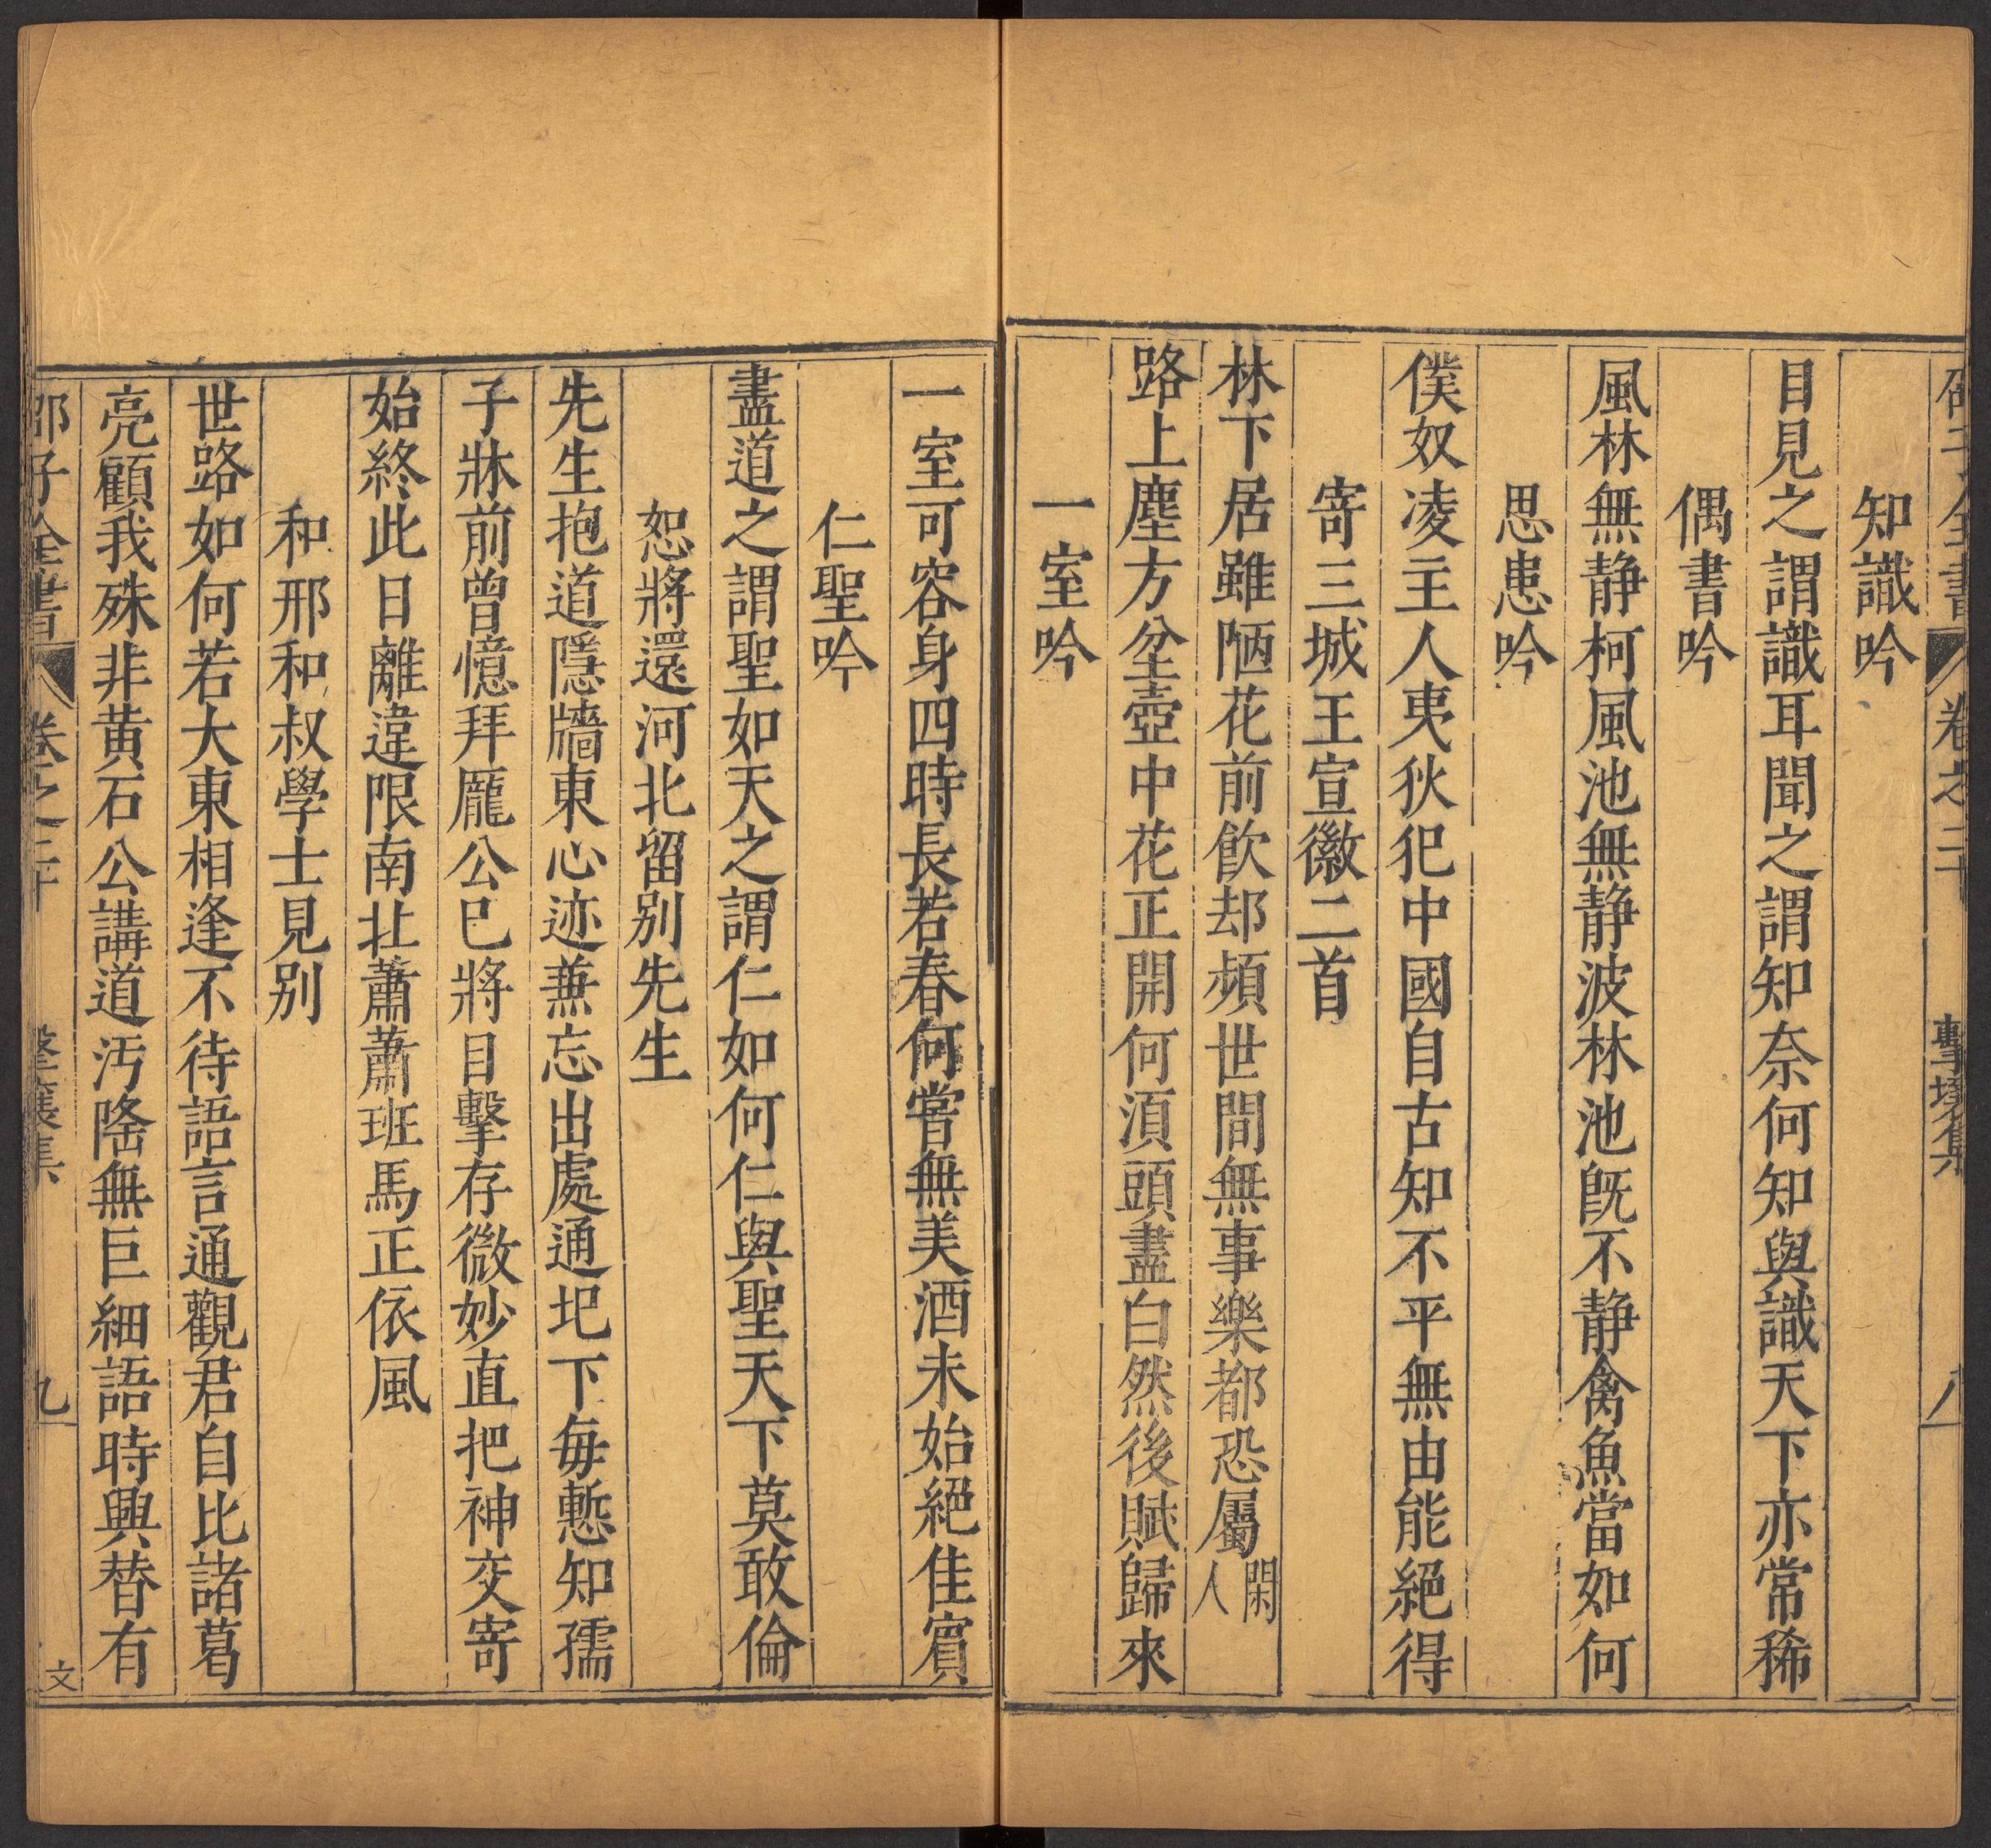 知識吟
目見之謂識耳聞之謂知奈何知與識天下亦常稀
偶書吟
風林無静柯風池無静波林池旣不静禽魚當如何
思患吟
僕奴凌主人夷狄犯中國自古知不平無由能絕得
寄三城王宣徽二首
林下居雖陋花前飲却頻世間無事樂都恐屬閑人
路上塵方坌壺中花正開何湏頭盡白然後賦歸來
一室吟
一室可容身四時長若春何嘗無美酒未始絕佳賓
仁聖吟
盡道之謂聖如天之謂仁如何仁與聖天下莫敢倫
恕將還河北留别先生
先生抱道隱牆東心迹兼忘出處通圯下每慙知孺
子牀前曾憶拜龎公已將目擊存微妙直把神交寄
始終此日離違限南北蕭蕭班馬正依風
和邢和叔學士見别
世路如何若大東相逢不待語言通觀君自比諸葛
亮顧我殊非黄石公講道汚隆無巨細語時興替有
邵子全書 卷之二十 擊壤集 九 文